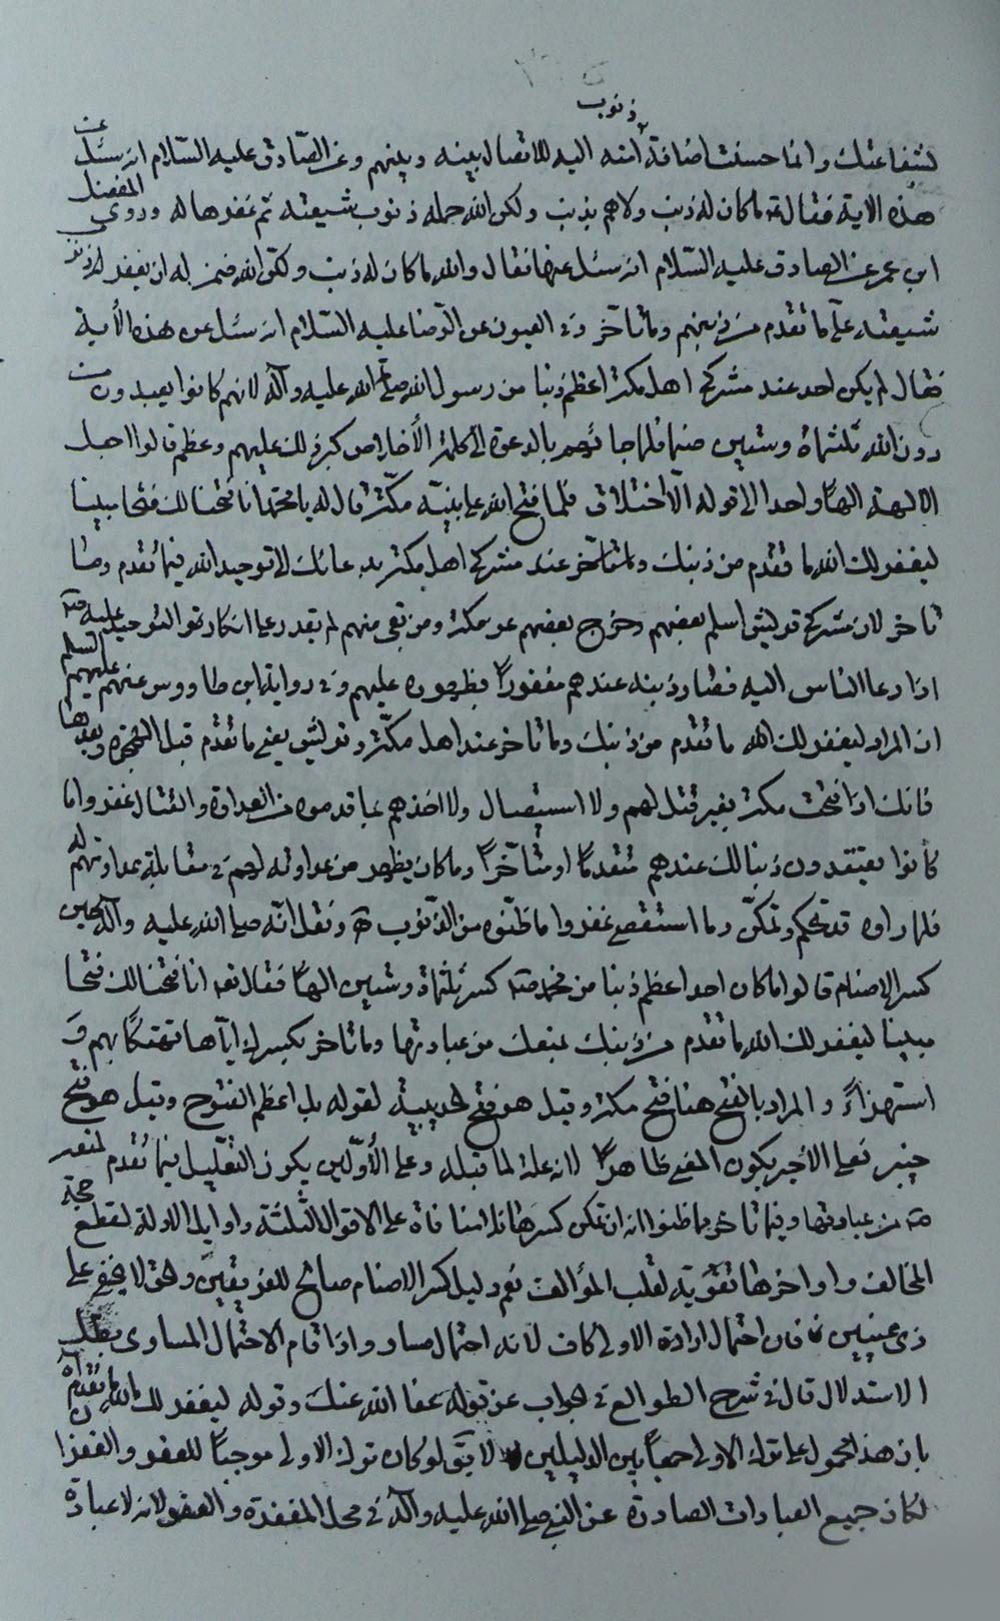 ذنوب
لشفاعتك وانما حسنت اضافة امته اليه للاتصال بينه وبينهم وعن الصادق عليه السلام انه سئل عن
هذه الاية فقال ما كان له ذنب ولا هم بذنب ولكن الله حمله ذنوب شيعته ثم غفرها له وروى المفضل
ابن عمر عن الصادق عليه السلام انه سئل عنها فقال والله ما كان له ذنب ولكن الله ضمن له ان يغفر ذنوب
شيعته علي ما تقدم من ذنبهم وما تاخر وفى العيون عن الرضا عليه السلام انه سئل عن هذه الأية
فقال لم يكن احد عند مشركى اهل مكة اعظم ذنبا من رسول الله صلى الله عليه وآله لانهم كانوا يعبدون من
دون الله ثلثمأة وستين صنما فلما جائهم بالدعوة الى كلمة الأخلاص كبر ذلك عليهم وعظم قالوا اجعل
الالهة الهاً واحدا الى قوله الّا اختلاق فلما فتح الله على نبيّه مكّة قال له يا محمد انا فتحنا لك فتحا مبينا
ليغفر لك الله ما تقدم من ذنبك وما تاخر عند مشركى اهل مكة بدعائك الى توحيد الله فيما تقدم وما
تاخر لان مشركى قريش اسلم بعضهم وخرج بعضهم عن مكة ومن بقى منهم لم يقدر على انكار التوحيد عليه
اذا دعا الناس اليه فصار ذنبه عندهم مغفوراً بظهوره عليهم وفى رواية ابن طاووس عنهم عليهم السلم
ان المراد ليغفر لك الله ما تقدم من ذنبك وما تاخر عند اهل مكّة وقريش يعني ما تقدم قبل الهجرة وبعدها
فانك اذا فتحت مكة بغير قتل لهم ولا استيصال ولا اخذهم بما قدموه من العداوة والقتال غفروا ما
كانوا يعتقدونه ذنبا لك عندهم متقدماً او متأخراً وما كان يظهر من عداوته لهم فى مقابلة عداوتهم له
فلما راوه قد تحكم وتمكّن وما استقصى غفروا ما ظنّوه من الذنوب ونقل انّه صلى الله عليه وآله حين
كسر الاصنام قالوا ما كان احد اعظم ذنبا من محمد كسر ثلثمأة وستين الهاً فقال تعه انا فتحنا لك فتحا
مبينا ليغفر لك الله ما تقدم من ذنبك بمنعك من عبادتها وما تاخر بكسرك ايّاها تهتكاً بهم و
استهزاءً والمراد بالفتح هنا فتح مكة وقيل هو فتح الحديبية لقوله بل اعظم الفتوح وقيل هو فتح
خيبر فعلى الأخير يكون المعنى ظاهراً لانه علة لما قبله وعلى الأوّلين يكون التعليل فيما تقدم لمنعه
من عبادتها وفيما تاخر بما ظنوا انه ان تمكن كسرها فلا منافاة على الاقوال الثلثة واوايل الادلة لقطع حجة
المخالف واواخرها تقوية لقلب المؤالف نعم دليل كسر الاصنام صالح للفريقين والحق لا يخفى على
ذى عينين فان احتمال ارادة الاولى كاف لانه احتمال مساو واذا قام الاحتمال المساوى بطل
الاستدلال قال فى شرح الطوالع فى الجواب عن قوله عفا الله عنك وقوله ليغفر لك الله ما تقدم
بان هذا محمول على ترك الاولى جمعاً بين الدليلين لا يق لو كان ترك الاولى موجباً للعفو والغفران
لكان جميع العبادات الصادرة عن النبى صلى الله عليه وآله فى محل المغفرة والعفو لانه لا عبادة